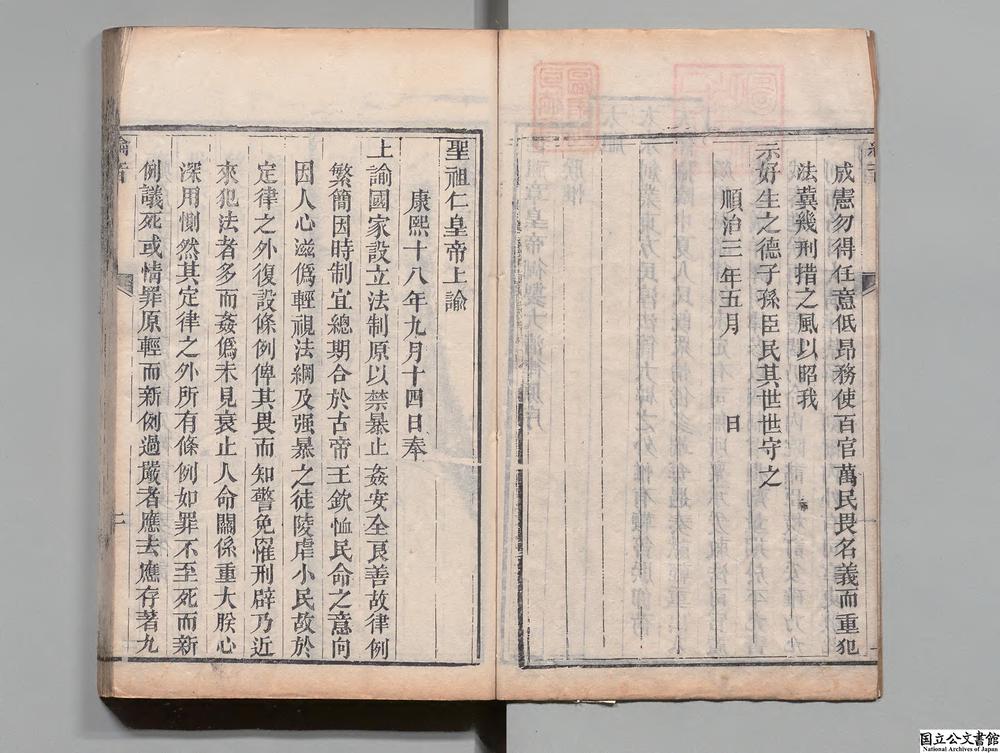 成憲勿得任意低昂務使百官萬民畏名義而重犯
法冀幾刑措之風以昭我
示好生之德子孫臣民其世世守之
順治三年五月　日
聖祖仁皇帝上諭
康熙十八年九月十四日奉
上諭國家設立法制原以禁暴止姦安全良善故律例
繁簡因時制宜總期合於古帝王欽恤民命之意向
因人心滋僞輕視法網及强暴之徒陵虐小民故於
定律之外復設條例俾其畏而知警免罹刑辟乃近
來犯法者多而姦僞未見衰止人命關係重大朕心
深用惻然其定律之外所有條例如罪不至死而新
例議死或情罪原輕而新例過嚴者應去應存著九
二
国立公文書館
National Archives of Japan